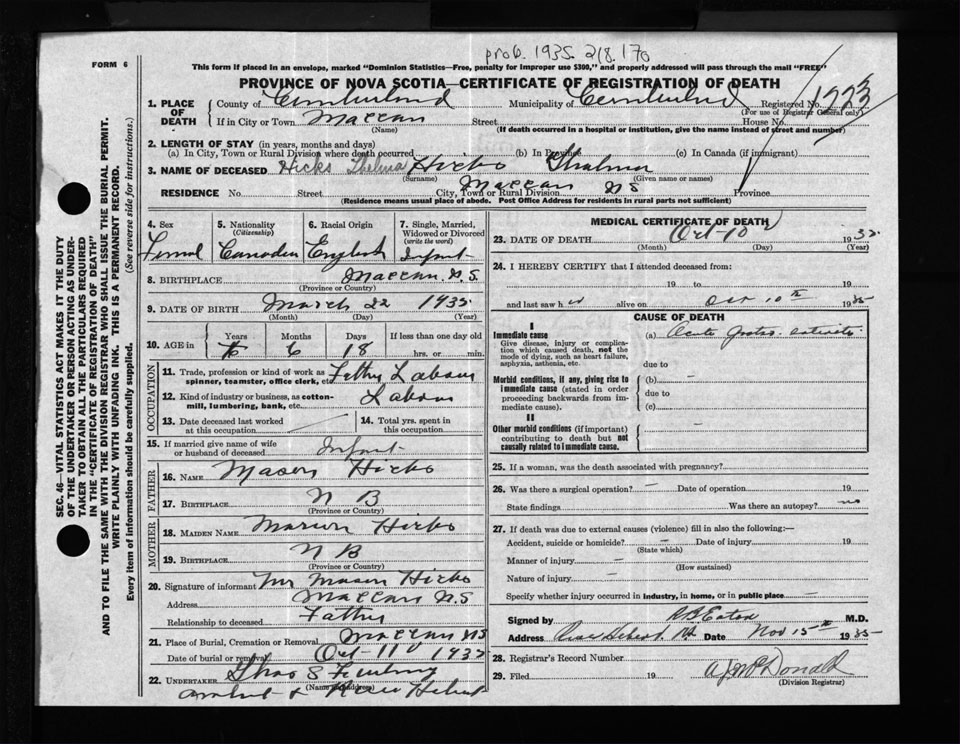 prob. 1935. 218.170
FORM 6
This form if placed in an envelope, marked "Dominion Statistics—Free, penalty for improper use $300," and properly addressed will pass through the mail "FREE"
PROVINCE OF NOVA SCOTIA—CERTIFICATE OF REGISTRATION OF DEATH
1. PLACE OF DEATH
County of Cumberland Municipality of Cumberland Registered No. 1223
(For use of Registrar General only)
If in City or Town Maccan Street House No.
(Name) (If death occurred in a hospital or institution, give the name instead of street and number)
2. LENGTH OF STAY (in years, months and days)
(a) In City, Town or Rural Division where death occurred (b) In Province (c) In Canada (if immigrant)
3. NAME OF DECEASED Hicks Thelma Hicks Thalma
(Surname) (Given name or names)
RESIDENCE No. Street City, Town or Rural Division Maccan NS Province
(Residence means usual place of abode. Post Office Address for residents in rural parts not sufficient)
4. Sex 5. Nationality (Citizenship) 6. Racial Origin 7. Single, Married, Widowed or Divorced (write the word)
Femal Canadien English Infant
8. BIRTHPLACE Maccan. N.S.
(Province or Country)
9. DATE OF BIRTH March 22 1935
(Month) (Day) (Year)
10. AGE in Years Months Days If less than one day old
6 18 hrs. or min.
OCCUPATION
11. Trade, profession or kind of work as spinner, teamster, office clerk, etc. Father Labour
12. Kind of industry or business, as cotton-mill, lumbering, bank, etc. Labour
13. Date deceased last worked at this occupation
14. Total yrs. spent in this occupation
15. If married give name of wife or husband of deceased Infant
FATHER
16. NAME Mason Hicks
17. BIRTHPLACE N B
(Province or Country)
MOTHER
18. MAIDEN NAME Marion Hicks
19. BIRTHPLACE N B
(Province or Country)
20. Signature of informant Mr Mason Hicks
Address Maccan N.S
Relationship to deceased Father
21. Place of Burial, Cremation or Removal Maccan NS
Date of burial or removal Oct-11 1935
22. UNDERTAKER
(Name and address)
Amherst & River Hebert
MEDICAL CERTIFICATE OF DEATH
23. DATE OF DEATH Oct-10 1935
(Month) (Day) (Year)
24. I HEREBY CERTIFY that I attended deceased from:
19 to 19
and last saw h alive on Oct 10th 1935
CAUSE OF DEATH
I
Immediate cause
Give disease, injury or complication which caused death, not the mode of dying, such as heart failure, asphyxia, asthenia, etc.
(a) Acute Gastro. enteritis
due to
Morbid conditions, if any, giving rise to immediate cause (stated in order proceeding backwards from immediate cause).
(b) –
due to
(c)
II
Other morbid conditions (if important) contributing to death but not causally related to immediate cause.
–
25. If a woman, was the death associated with pregnancy?
26. Was there a surgical operation? – Date of operation 19
State findings Was there an autopsy? no
27. If death was due to external causes (violence) fill in also the following:—
Accident, suicide or homicide? – Date of injury 19
(State which)
Manner of injury –
(How sustained)
Nature of injury –
Specify whether injury occurred in industry, in home, or in public place –
Signed by Eaton M.D.
Address River Hebert, NS Date Nov 15th 1935
28. Registrar's Record Number
29. Filed 19 McDonald
(Division Registrar)
SEC. 46—VITAL STATISTICS ACT MAKES IT THE DUTY
OF THE UNDERTAKER OR PERSON ACTING AS UNDER-
TAKER TO OBTAIN ALL THE PARTICULARS REQUIRED
IN THE "CERTIFICATE OF REGISTRATION OF DEATH"
AND TO FILE THE SAME WITH THE DIVISION REGISTRAR WHO SHALL ISSUE THE BURIAL PERMIT.
WRITE PLAINLY WITH UNFADING INK. THIS IS A PERMANENT RECORD.
Every item of information should be carefully supplied. (See reverse side for instructions.)